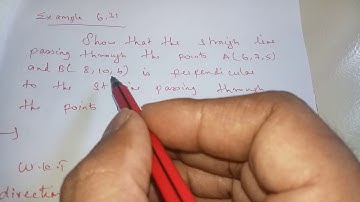 Example 6.31
Show that the straigh line
passing through the points A(6,7,5)
and B( 8,10,6) is perpendicular
to the st line passing through
the points
W.K.T
direction